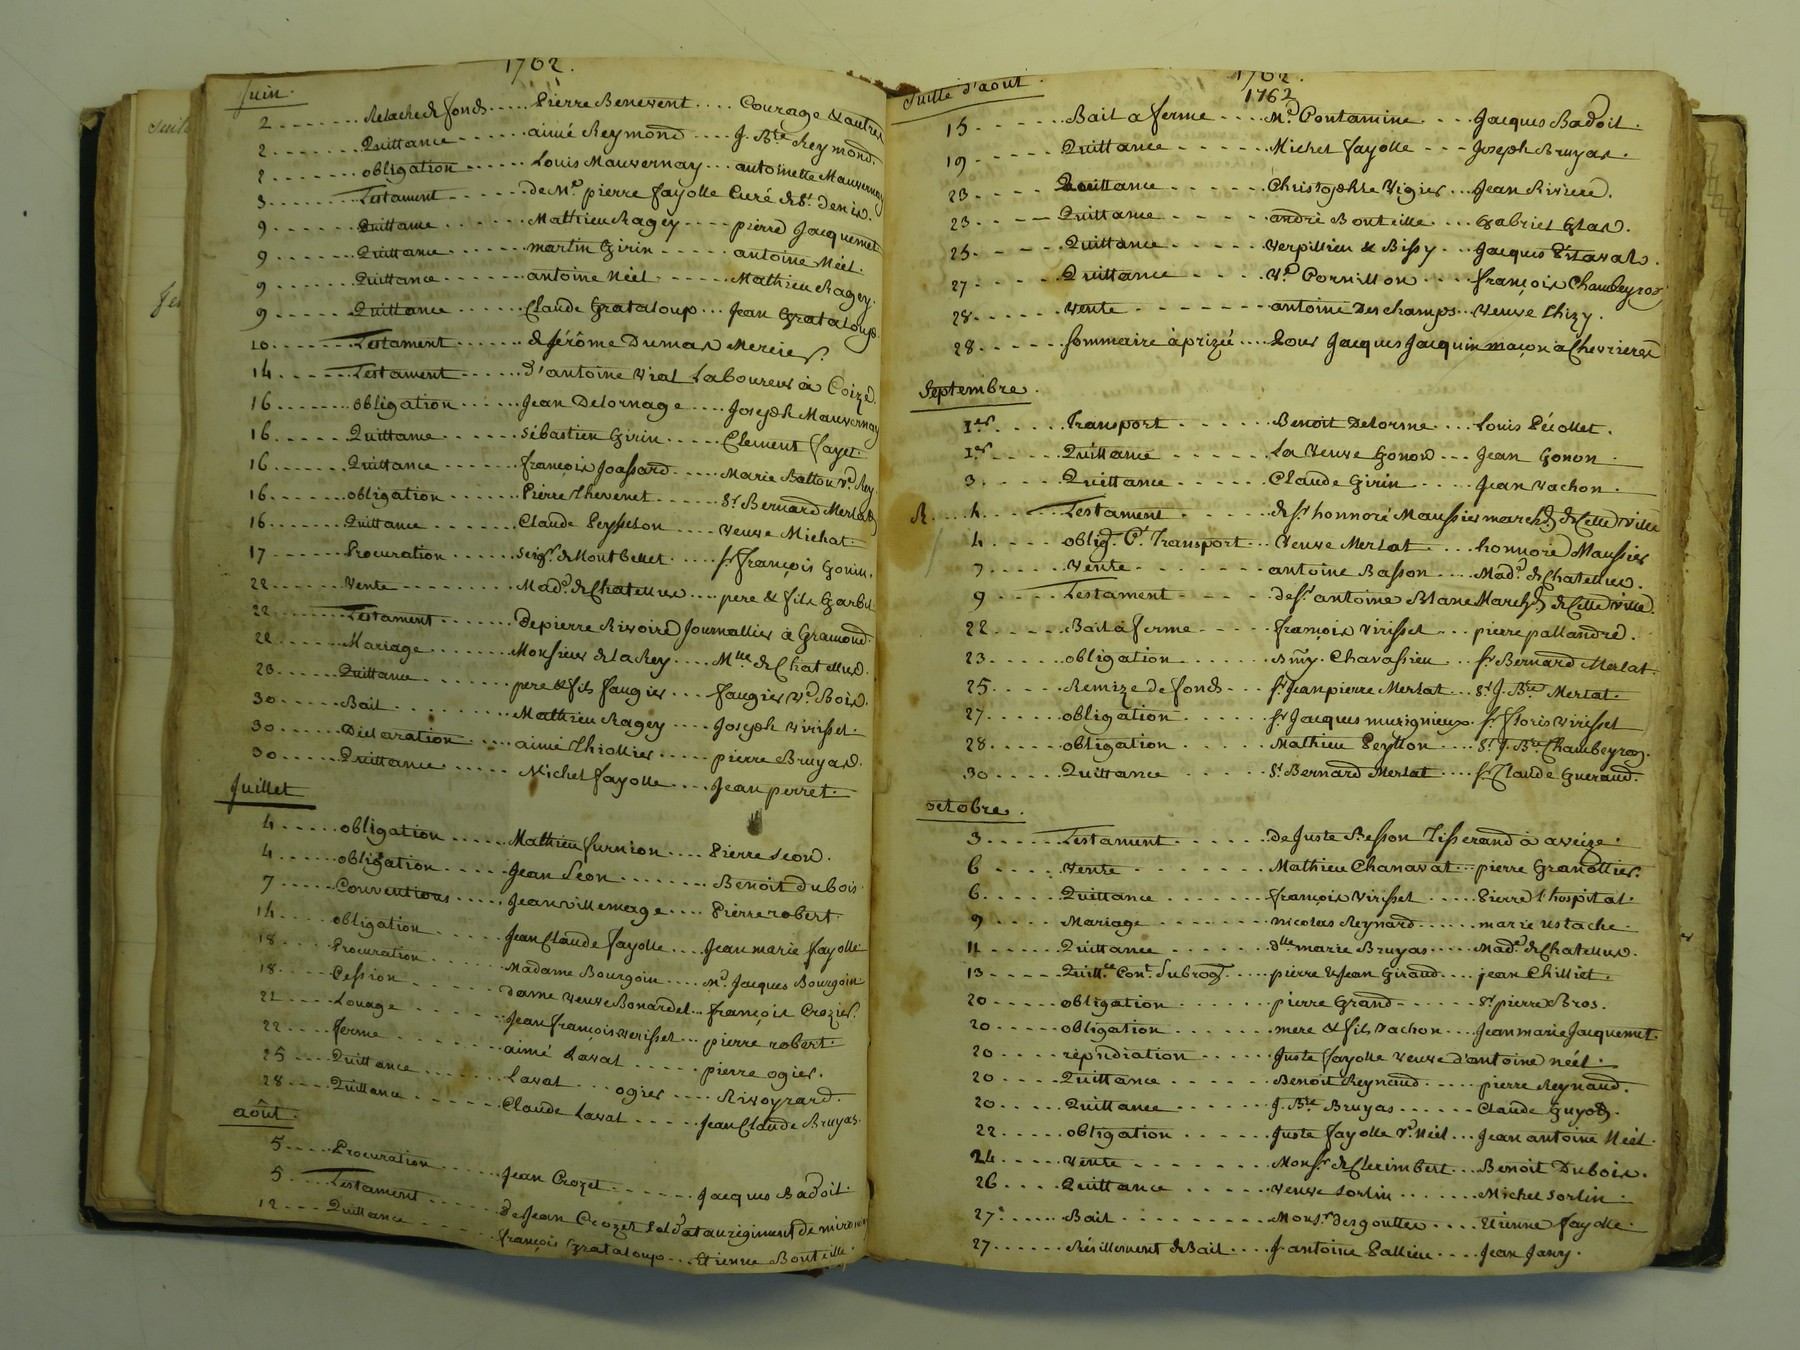 1762.
Juin.
2 ....... Relache de fonds ..... Pierre Benevent .... Courage & autres
2 ....... Quittance ...... aimé Reymond .... J. Bte Reymond.
2 ....... obligation ...... Louis Mauvernay ... antoinette Mauvernay
3 ....... Testament ..... de Mre pierre fayolle Curé de St. denis.
9 ....... Quittance ...... Mathieu Ragey .... pierre Jacquemet
9 ....... Quittance ...... martin Girin ..... antoine Néel.
9 ....... Quittance ...... antoine Néel ...... Mathieu Ragey.
9 ....... Quittance ...... Claude Grataloup ... Jean Grataloup.
10 ....... Testament ....... de Jérôme Dumas Mercier.
14 ....... Testament ...... d'antoine Vial Laboureur à Coize.
16 ....... obligation ...... Jean Delornage .... Joseph Mauvernay
16 ....... Quittance ...... Sébastien Girin ..... Clement fayet.
16 ....... Quittance ...... françois Joassard ..... Marie Batton Ve. Rey.
16 ....... obligation ....... Pierre Thevenet ...... Sr Bernard Merlat
16 ....... Quittance ...... Claude Peysselon .... Veuve Michat.
17 ....... Procuration ...... Seigr. de Montbellet ..... Sr. françois Gonin.
22 ....... Vente ........ Made. de Chatellus .... pere & fils Garbil
22 ....... Testament ....... De pierre Rivoire Journallier à Gramond.
22 ....... Mariage ....... Monsieur de la Rey .... Mlle de Chatellus.
23 ....... Quittance ....... pere & fils faugier .... faugier Ve. Boix.
30 ..... Bail ......... Mathieu Ragey .... Joseph Virisset.
30 ..... Déclaration .... aimé Thiollier ..... pierre Bruyas.
30 ..... Quittance ..... Michel fayolle .... Jean perret.
Juillet
4 ..... obligation ...... Mathieu furnion .... Pierre Leon.
4 ..... obligation ..... Jean Leon ........ Benoit dubois.
7 ..... Conventions ..... Jean villemage .... Pierre robert.
14 .... obligation ..... Jean Claude fayolle .... Jean marie fayolle
18 .... Procuration ..... Madame Bourgoin .... Mr. Jacques Bourgoin
18 .... Cession ...... Dame veuve Bonardel ... françois Crozier.
21 .... Louage ....... Jean françois verisset ... pierre robert.
22 .... ferme ........ aimé Lavat ..... pierre ogier.
25 .... Quittance ....... Lavat ... ogier .... Rivoyrard.
28 .... Quittance ...... Claude Lavat ..... Jean Claude Bruyas.
août.
5 .... Procuration ..... Jean Crozet ...... Jacques Badoit.
5 .... Testament ..... de Jean Crozet Soldat au régiment de
12 .... Quittance ..... françois Grataloup ... Etienne Bonteille.
1762.
1762
Suitte d'aout.
15 ..... Bail a ferme .... Mr. Pontamine .... Jacques Badoit.
19 ..... Quittance ..... Michel fayolle ... Joseph Bruyas.
23 .... Quittance ...... Christophle Vigier ... Jean Riviere.
23 .... Quittance ..... andré Bonteille .... Gabriel Glas.
25 .... Quittance ...... Verpillieu & Bissy ... Jacques Pitaval.
27 ..... Quittance .... Ve. Pornillon .... françois Chambeyron
28 ..... Vente ........ antoine Deschamps ... Veuve Thizy.
28 ..... Sommaire à prizié .... Pour Jacques Jacquin maçon a Chevrieres
Septembre.
1er. .... Transport ....... Benoit Delorme .... Louis Pécollet.
1er ..... Quittance ...... La Veuve Gonon ... Jean Gonon.
3 ..... Quittance ...... Claude Girin .... Jean Vachon.
R .... 4 .... Testament ...... de Sr. honnoré Maussier march. de Cette ville
4 .... oblig. Ct. Transport ... Veuve Merlat .... honnoré Maussier
7 ..... Vente ....... antoine Basson .... Made. de Chatellus.
9 ..... Testament ..... de Sr. antoine Blanc March. de Cette ville.
22 ..... Bail à ferme ..... françois Virisset ... pierre pallandre.
23 ..... obligation ...... Chavassieu ... Sr. Bernard Merlat.
25 ..... Remize de fonds ... Sr. Jean pierre Merlat ... Sr. J. Bte Merlat.
27 ...... obligation ...... Sr. Jacques murignieux. Sr. floris virisset
28 ...... obligation ..... Mathieu Peytton .... Sr. J. Bte. Chambeyron.
30 ..... Quittance ..... Sr. Bernard Merlat .... Sr. Claude Gueraud.
octobre.
3 ..... Testament ...... de Juste Besson Tisserand à aveize.
6 ..... Vente ....... Mathieu Chanavat ... pierre Granottier.
6 ..... Quittance ....... françois Virisset ..... Pierre l'hospital.
9 .... Mariage ....... nicolas Reynard ...... marie ustache.
11 ..... Quittance ...... dlle marie Bruyas .... Made. de Chatellus.
13 ..... Quittce. Cont. Subrog. .... pierre & Jean Giraud .... jean Chilliet.
20 ..... obligation ....... pierre Grand ...... Sr. pierre Bros.
20 .... obligation ....... mere & fils Vachon .... Jean marie Jacquemet.
20 .... répudiation ...... Juste fayolle veuve d'antoine néel.
20 .... Quittance ....... Benoit Reynaud ..... pierre Reynaud.
20 ..... Quittance ....... J. Bte Bruyas ...... Claude Guyot.
22 ..... obligation ...... Juste fayolle Ve. Néel ... Jean antoine Néel.
24 ..... Vente ........ Monsr. de Clerimbert ... Benoit Dubois.
26 .... Quittance ...... Veuve Sorlin ....... Michel Sorlin.
27 ..... Bail ......... Monsr. desgouttes .... Etienne fayolle.
27 ...... Résillement de Bail .... J. antoine Pallieu .... Jean Jany.